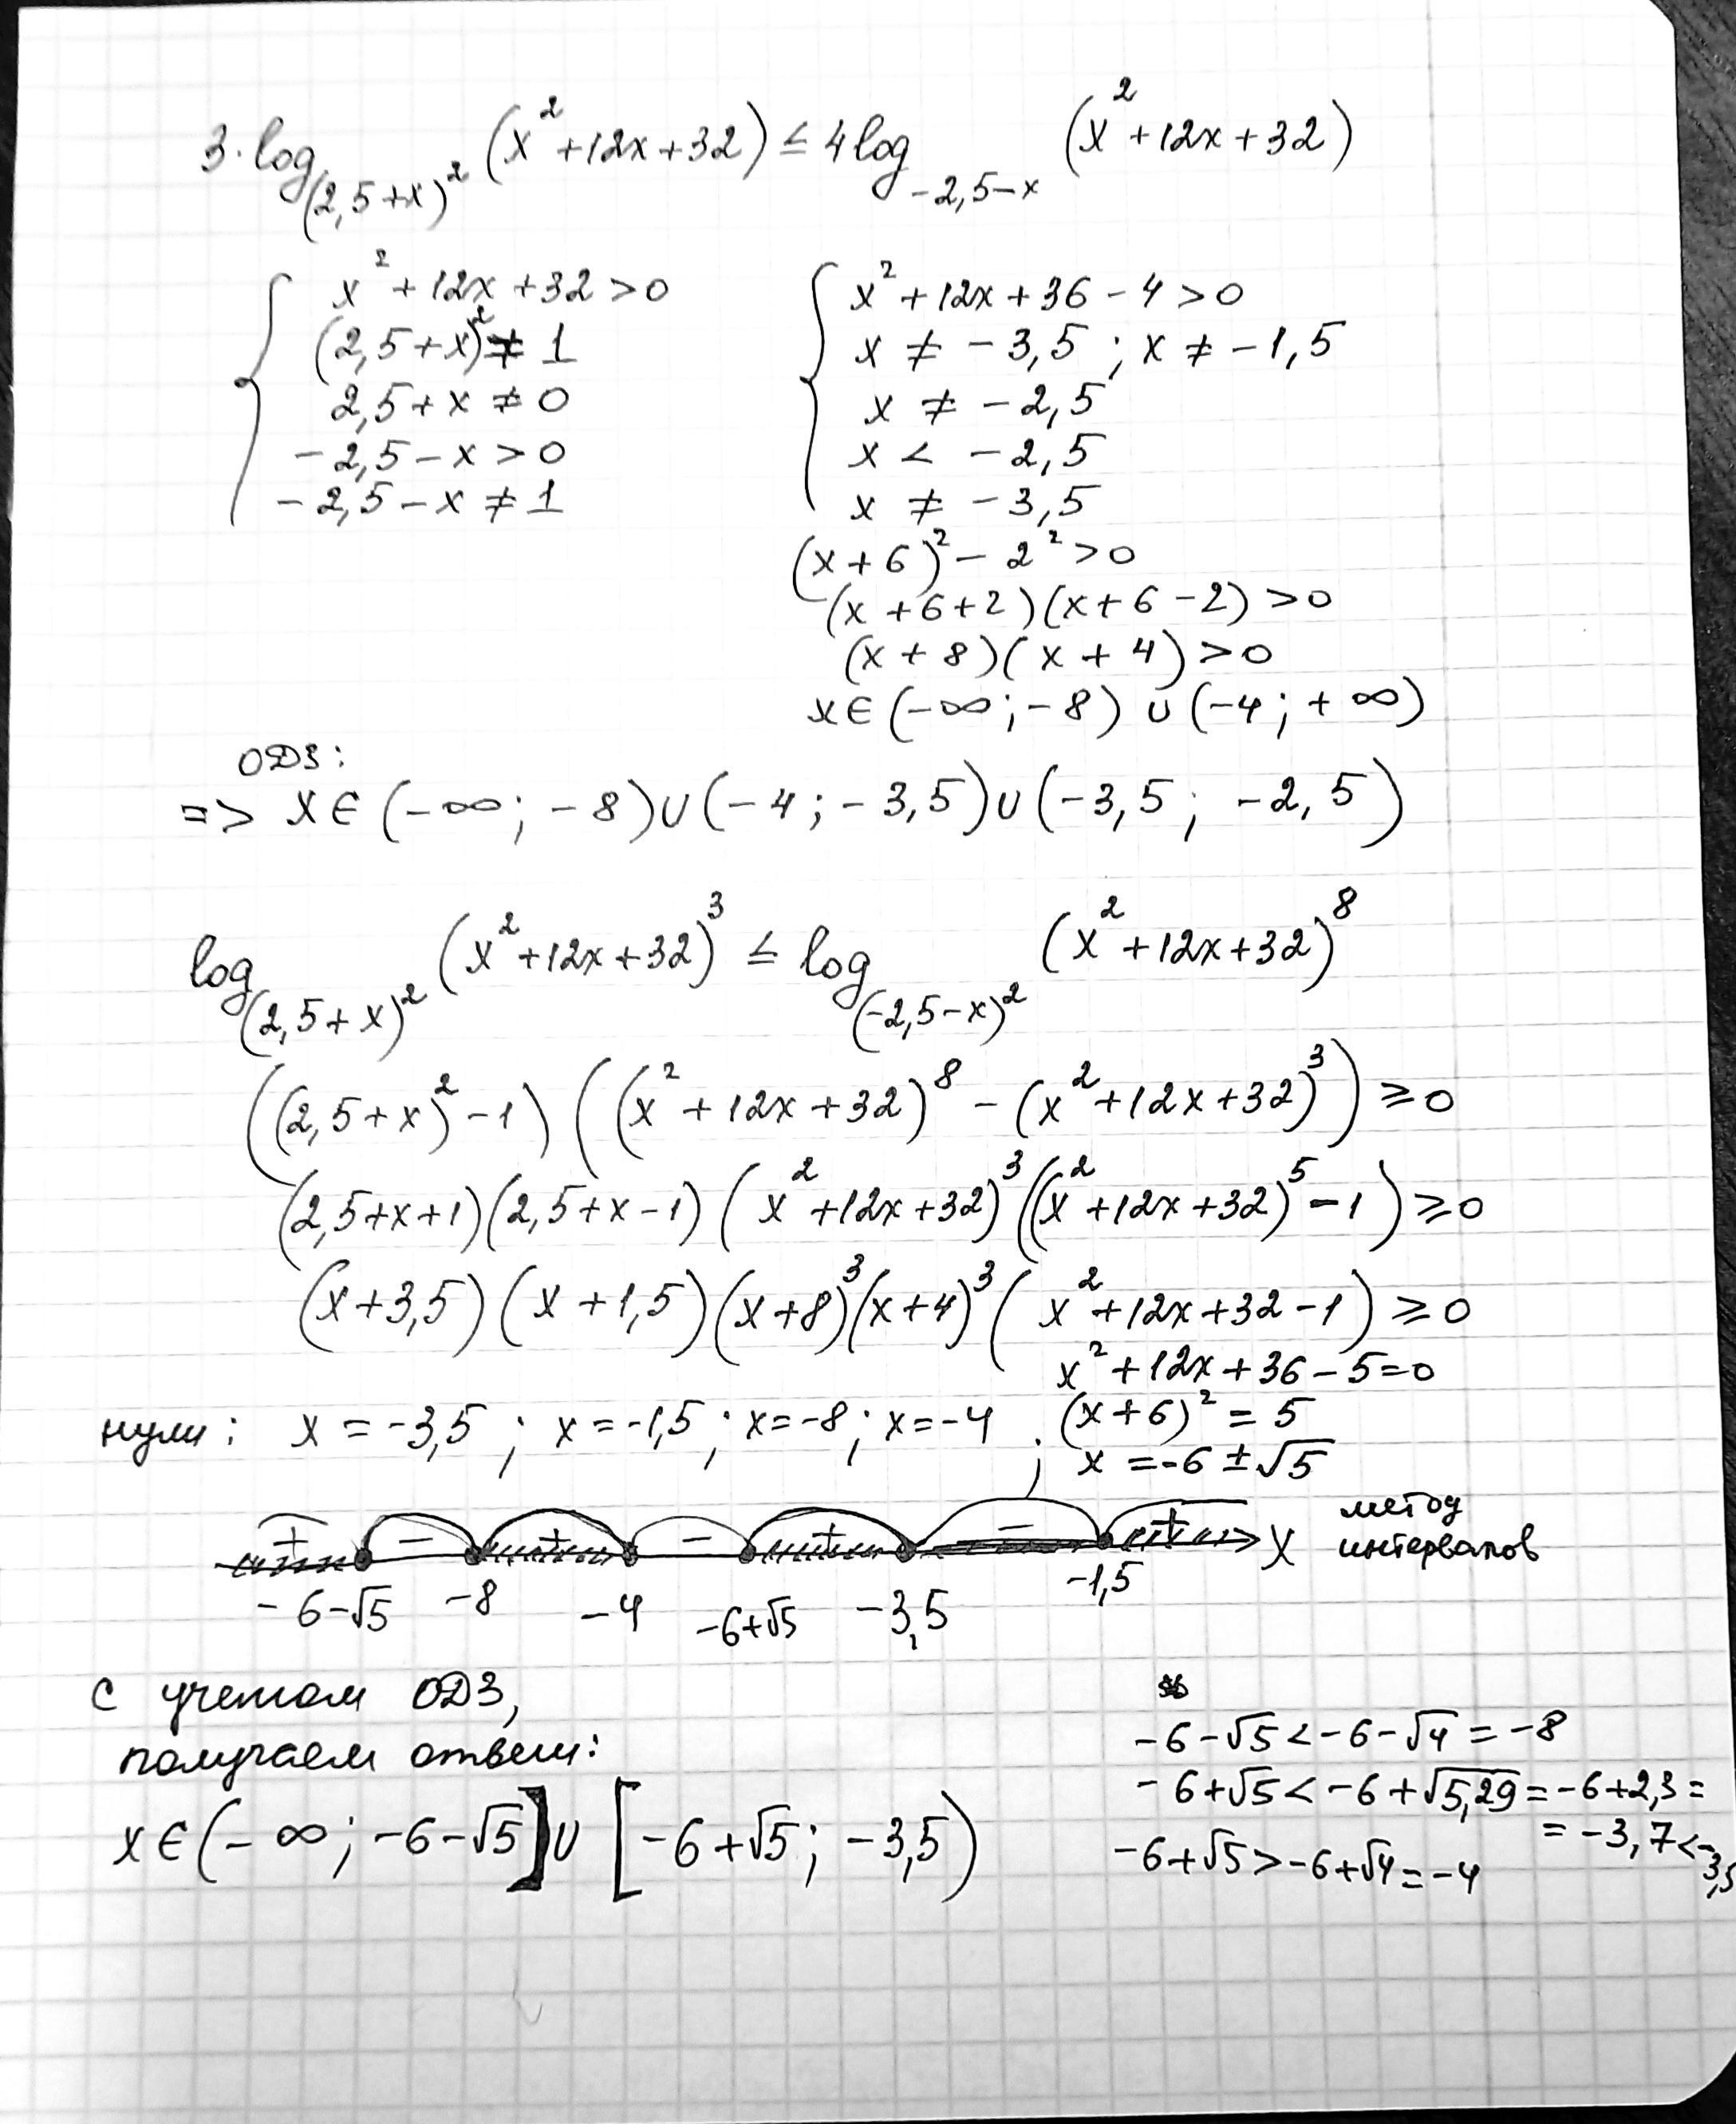 3·log_{(2,5+x)²} (x²+12x+32) ≤ 4log_{-2,5-x} (x²+12x+32)
x²+12x+32>0
(2,5+x)²≠1
2,5+x≠0
-2,5-x>0
-2,5-x≠1
x²+12x+36-4>0
x≠-3,5; x≠-1,5
x≠-2,5
x<-2,5
x≠-3,5
(x+6)²-2²>0
(x+6+2)(x+6-2)>0
(x+8)(x+4)>0
x∈(-∞;-8)∪(-4;+∞)
ОДЗ:
=> x∈(-∞;-8)∪(-4;-3,5)∪(-3,5;-2,5)
log_{(2,5+x)²} (x²+12x+32)³ ≤ log_{(-2,5-x)²} (x²+12x+32)⁸
((2,5+x)²-1)((x²+12x+32)⁸-(x²+12x+32)³)≥0
(2,5+x+1)(2,5+x-1)(x²+12x+32)³((x²+12x+32)⁵-1)≥0
(x+3,5)(x+1,5)(x+8)³(x+4)³(x²+12x+32-1)≥0
x²+12x+36-5=0
(x+6)²=5
x=-6±√5
нули: x=-3,5; x=-1,5; x=-8; x=-4;
+ - + - + - + x
-6-√5 -8 -4 -6+√5 -3,5 -1,5
метод
интервалов
с учетом ОДЗ,
получаем ответ:
x∈(-∞;-6-√5]∪[-6+√5;-3,5)
-6-√5<-6-√4=-8
-6+√5<-6+√5,29=-6+2,3=
=-3,7<-3,5
-6+√5>-6+√4=-4